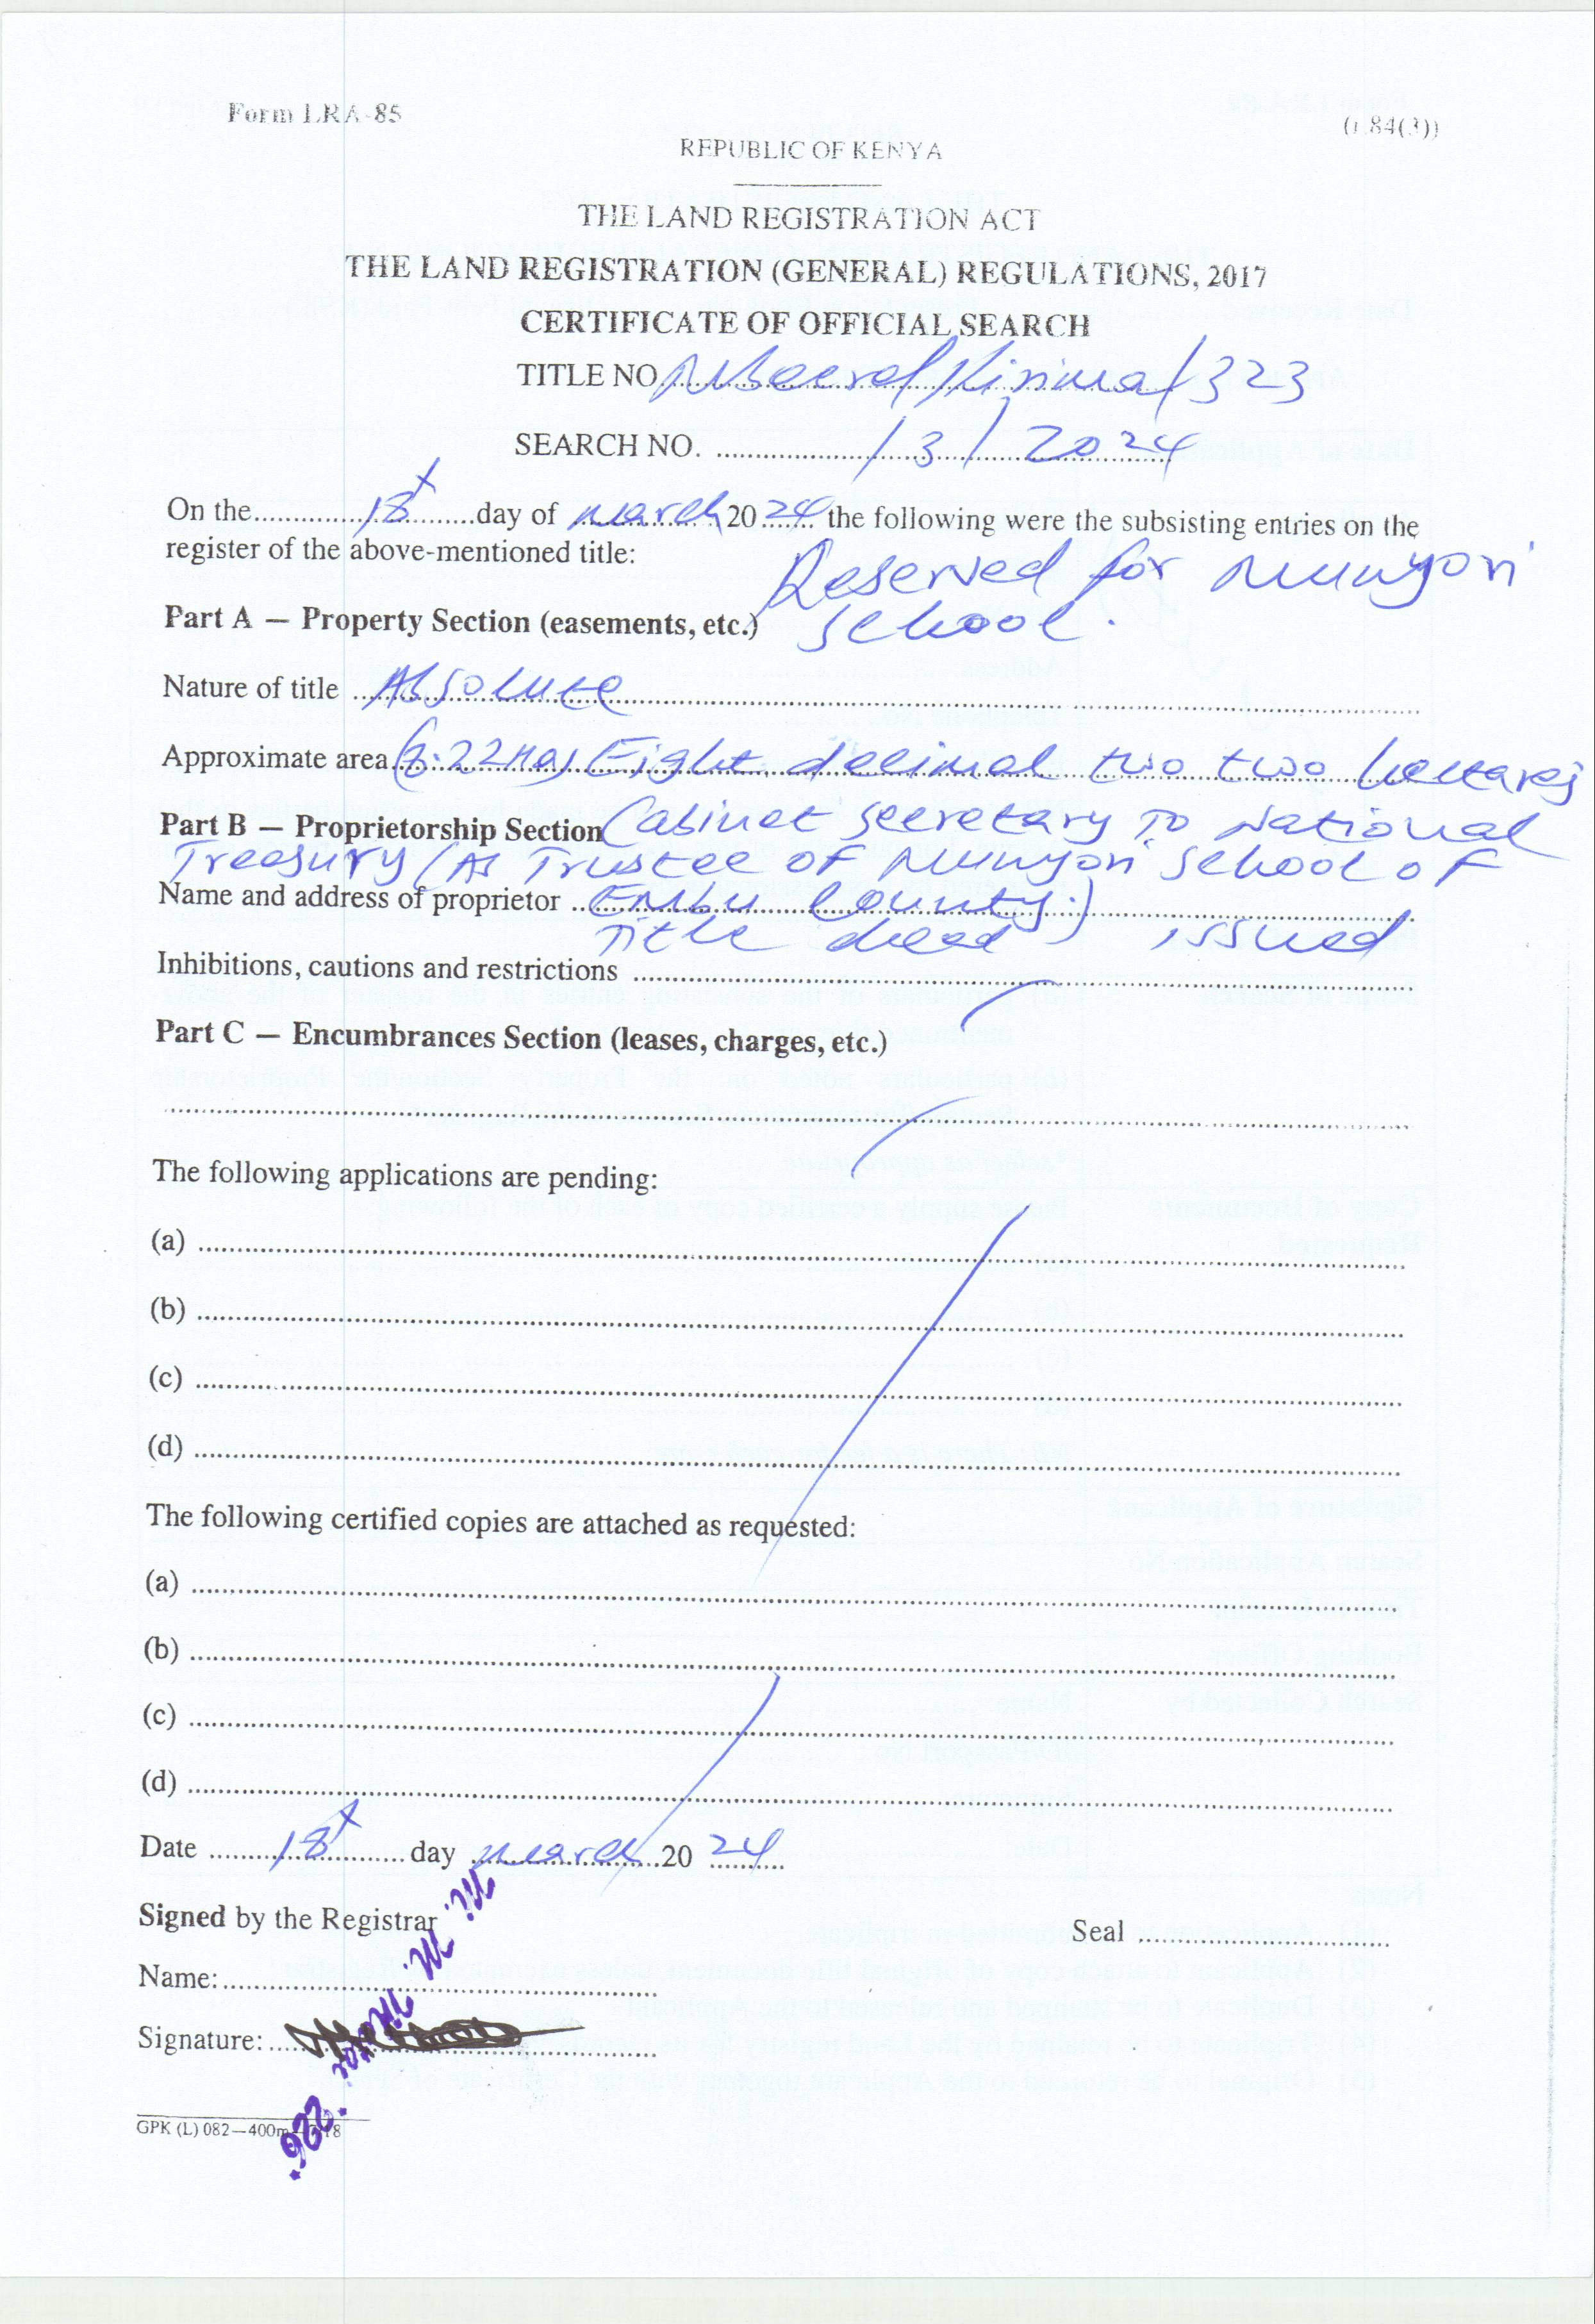 Form LRA-85
(r.84(3))
REPUBLIC OF KENYA
THE LAND REGISTRATION ACT
THE LAND REGISTRATION (GENERAL) REGULATIONS, 2017
CERTIFICATE OF OFFICIAL SEARCH
TITLE NO. Kirima/323
SEARCH NO. /3/2024
On the 18th day of march 2024 the following were the subsisting entries on the
register of the above-mentioned title:
Reserved for Munyori
Part A — Property Section (easements, etc.) School.
Nature of title Absolute
Approximate area (8.22Ha) Eight decimal two two hectares
Part B — Proprietorship Section Cabinet secretary To National
Treasury (As Trustee of Munyori School of
Name and address of proprietor Embu County.)
Title deed issued
Inhibitions, cautions and restrictions
Part C — Encumbrances Section (leases, charges, etc.)
The following applications are pending:
(a)
(b)
(c)
(d)
The following certified copies are attached as requested:
(a)
(b)
(c)
(d)
Date 18th day march 2024
Signed by the Registrar
Seal
Name:
Signature:
GPK (L) 082—400m